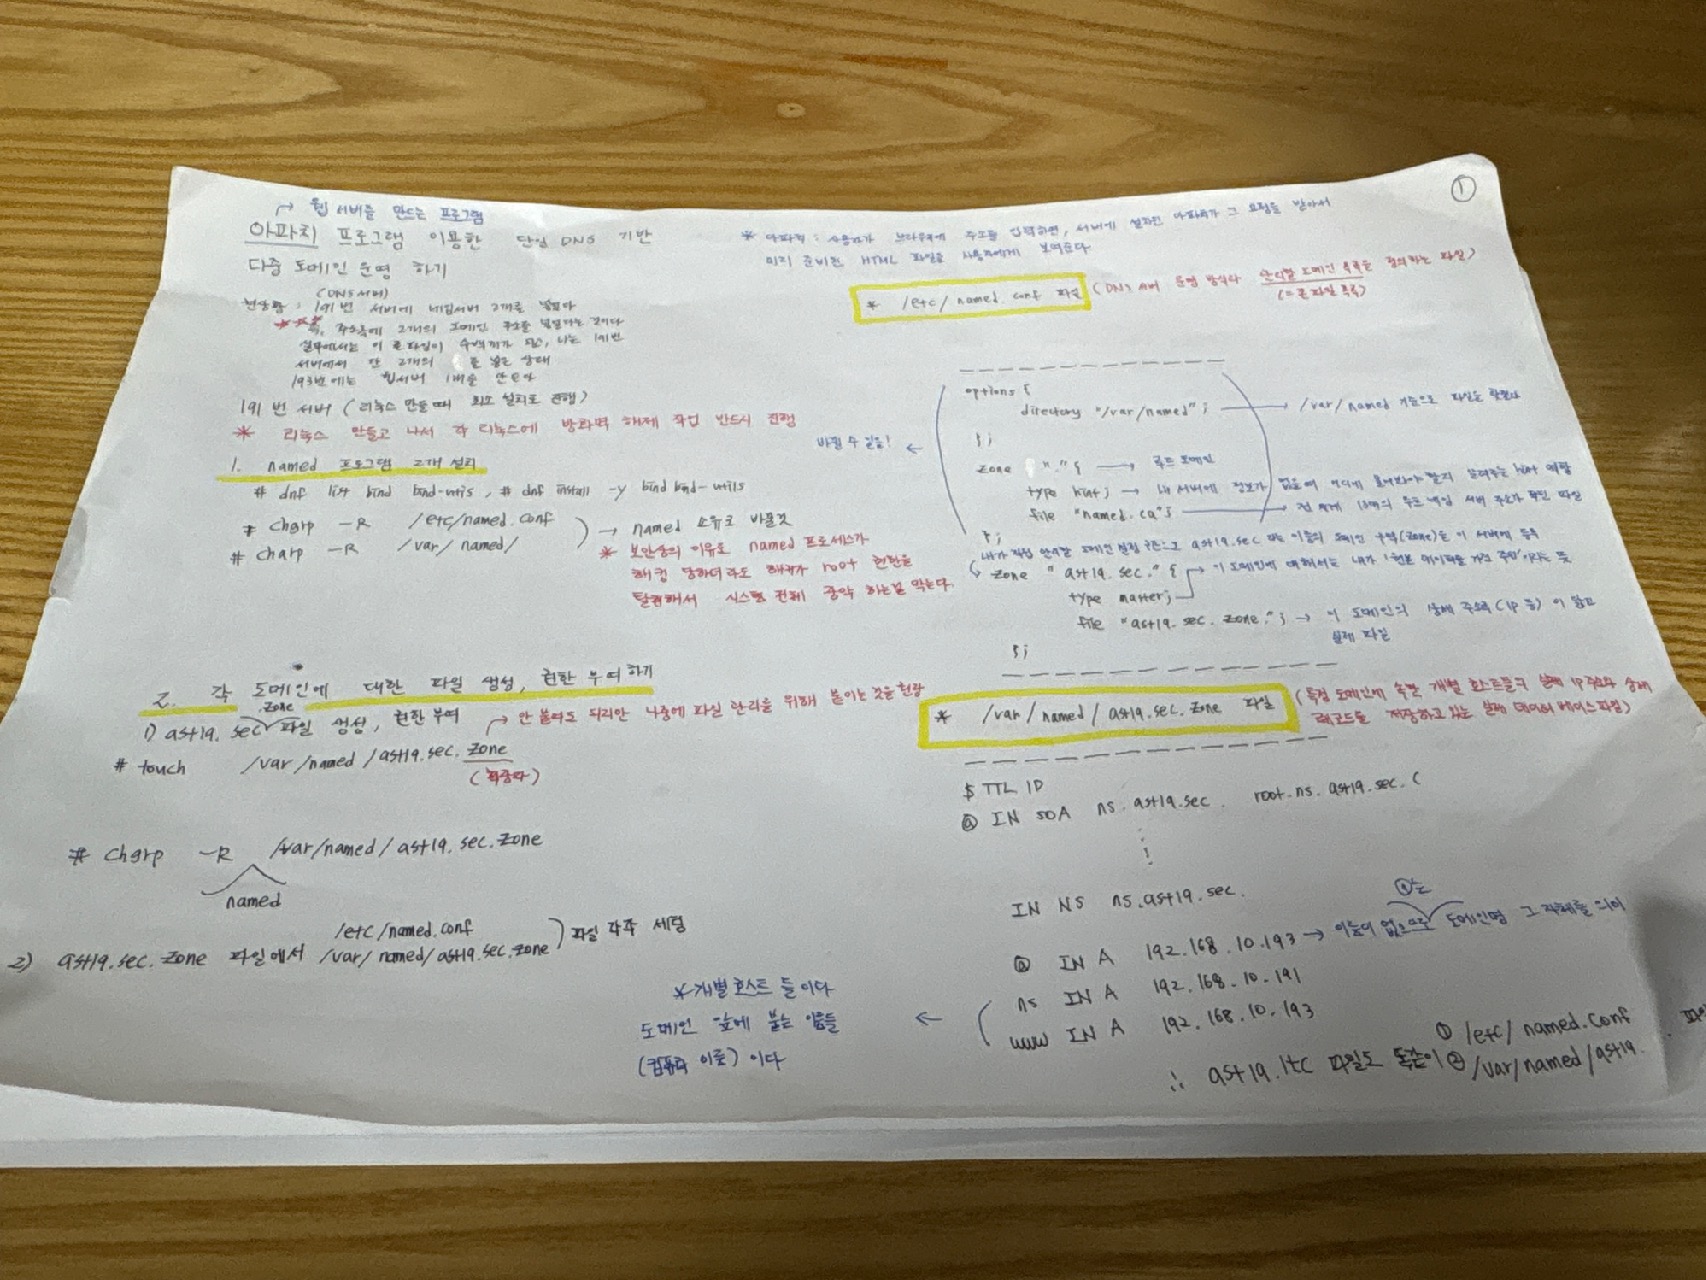 → 웹 서버를 만드는 프로그램
아파치 프로그램 이용한 단일 DNS 기반
다중 도메인 운영 하기
(DNS서버)
191번 서버에 네임서버 2개를 넣었다
즉, 주소록에 2개의 도메인 주소를
실무에서는 이 존파일이 수백개가 되고, 나는 191번
서버에서 단 2개의 를 넣은 상태
193번에는 웹서버 1개를 만든다
191번 서버 (리눅스 만들때 최소 설치로 진행)
* 리눅스 만들고 나서 각 리눅스에 방화벽 해제 작업 반드시 진행
1. named 프로그램 2개 설치
# dnf list bind bind-utils, # dnf install -y bind bind-utils
# chgrp -R /etc/named.conf
# chgrp -R /var/named/
→ named 소유로 바꿀것
* 보안상의 이유로 named 프로세스가
해킹 당하더라도 해커가 root 권한을
탈취해서 시스템 전체 장악 하는걸 막는다.
2. 각 도메인에 대한 파일 생성, 권한 부여하기
.zone
1) ast19.sec 파일 생성, 권한 부여
→ 안 붙여도 되지만 나중에 파일 관리를 위해 붙이는 것을 권장
# touch /var/named/ast19.sec.zone
(확장자)
# chgrp -R /var/named/ast19.sec.zone
named
/etc/named.conf
2) ast19.sec.zone 파일에서 /var/named/ast19.sec.zone ) 파일 각각 세팅
①
* 아파치 : 사용자가 브라우저에 주소를 입력하면, 서버에 설치된 아파치가 그 요청을 받아서
미리 준비된 HTML 파일을 사용자에게 보여준다
* /etc/named.conf 파일 (DNS 서버 운영 방식과 관리할 도메인 목록을 정의하는 파일)
(= 존 파일 목록)
options {
directory "/var/named"; → /var/named 기준으로 파일을 찾는다
};
바뀔 수 있음! ←
zone "." { → 루트 도메인
type hint; → 내 서버에 정보가 없을때 어디에 물어봐야 할지 알려주는 hint 역할
file "named.ca"; → 전 세계 13개의 루트 네임 서버 주소가 적힌 파일
};
내가 직접 만드는 도메인 설정 구간으로 ast19.sec 라는 이름의 도메인 구역(zone)을 이 서버에 등록
zone "ast19.sec." { → 이 도메인에 대해서는 내가 '원본 데이터를 가진 주인'이라는 뜻
type master;
file "ast19.sec.zone."; → 이 도메인의 상세 주소록(IP 등)이 담긴
실제 파일
};
* /var/named/ast19.sec.zone 파일 (특정 도메인에 속한 개별 호스트들의 실제 IP주소와 상세
레코드들을 저장하고 있는 실제 데이터베이스파일)
$ TTL 1D
@ IN SOA ns.ast19.sec. root.ns.ast19.sec. (
IN NS ns.ast19.sec.
@는
@ IN A 192.168.10.193 → 이름이 없으므로 도메인명 그 자체를 의미
ns IN A 192.168.10.191
www IN A 192.168.10.193
* 개별 호스트 들이다
도메인 앞에 붙는 이름들 ←
(컴퓨터 이름) 이다
① /etc/named.conf
∴ ast19.itc 파일도 똑같이 ② /var/named/ast19.